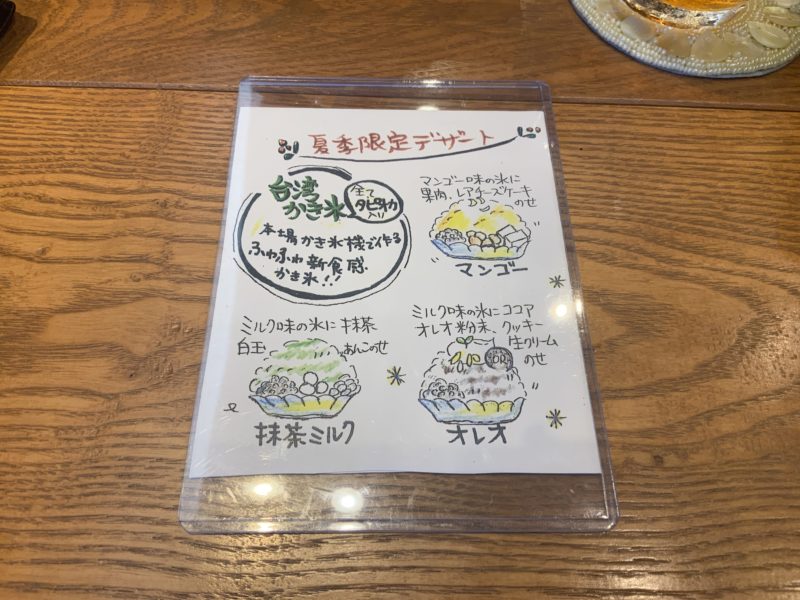 夏季限定デザート
台湾
かき氷
全て
タピオカ
入り
本場かき氷機でく作る
ふわふわ新食感
かき氷!!!
マンゴー味の氷に
果肉、レアチーズケーキ
のせ
マンゴー
ミルク味の氷に抹茶
白玉 あんこのせ
抹茶ミルク
ミルク味の氷にココア
オレオ粉末、クッキー
生クリーム
のせ
オレオ